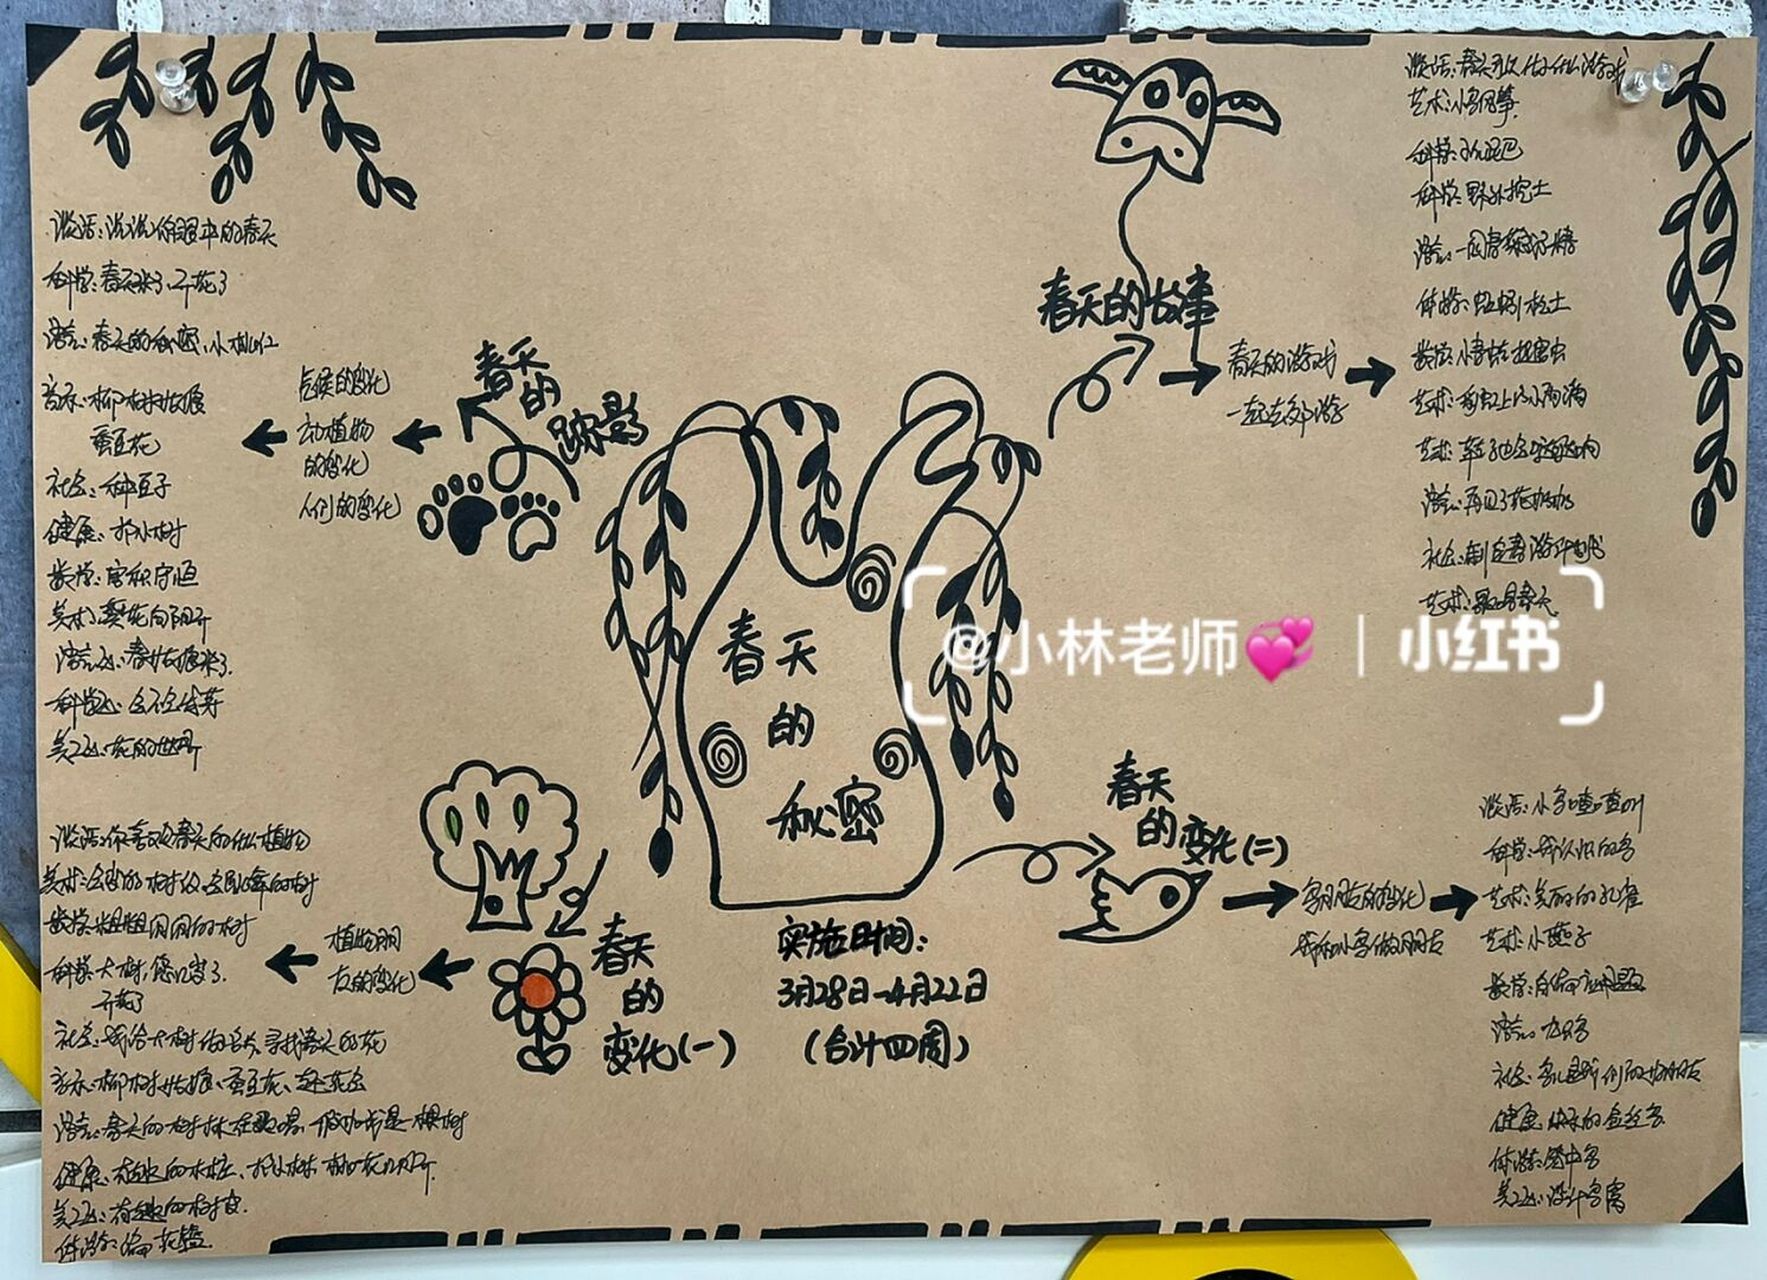 谈话：说说你眼中的春天
科学：春天来了、开花了
语言：春天的秘密、小桃红
音乐：柳树姑娘
蚕豆花
社会：种豆子
健康：小树
数学：容积守恒
美术：葵花向阳开
语言：春姑娘来了
科学：会不会发芽
美工：花的世界
气候的变化
动植物
的变化
人们的变化
春天
的
踪影
春天的故事
春天的游戏
一起去郊游
谈话：春天可以做什么游戏
艺术：小鸟风筝
科学：玩泥巴
科学：野外挖土
语言：一园青菜
体游：蚯蚓松土
数学：小青蛙捉害虫
艺术：小雨滴
艺术：
语言：再见了花奶奶
社会：制定春游计划书
艺术：歌唱春天
春天
的
秘密
@小林老师💞 | 小红书
谈话：你喜欢春天的什么植物
美术：会变的树
数学：粗粗的树
科学：大树，您几岁了
开花了
社会：我给大树、寻找春天的花
音乐：柳树姑娘、蚕豆花
语言：春天的树林在歌唱、假如我是一棵树
健康：有趣的木桩、小树、桃花几月开
美工：有趣的树皮
体游：花
植物朋
友的变化
春天
的
变化(一)
实施日期：
3月28日—4月22日
（合计四周）
春天
的变化(二)
鸟朋友的变化
我和小鸟做朋友
谈话：小鸟喳喳叫
科学：我认识的鸟
艺术：美丽的孔雀
艺术：小燕子
数学：自编应用题
语言：九色鸟
社会：鸟儿是我们的好朋友
健康：快乐的金丝鸟
体游：
美工：设计鸟窝